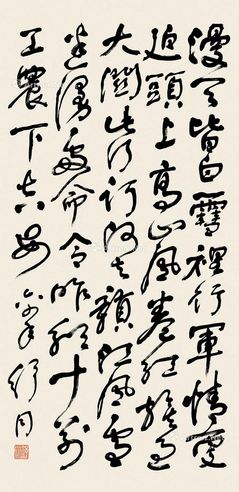 漫天皆白雪裡行軍情更
迫頭上高山風卷紅旗過
大關此行何去贛江風雪
迷漫處命令昨頒十萬
工農下吉安
舒同